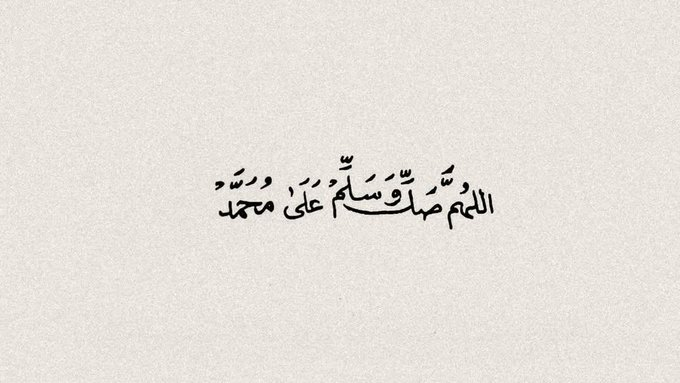 اللهُمَّ صَلِّ وَسَلِّمْ عَلَىٰ مُحَمَّدْ